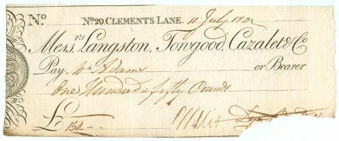 No.
No. 29 CLEMENTS LANE. 11 July 1802
Mess.rs Langston, Towgood, Cazalet & Co.
Pay Wm Adams or Bearer
One Hundred & fifty Pounds
£150 —